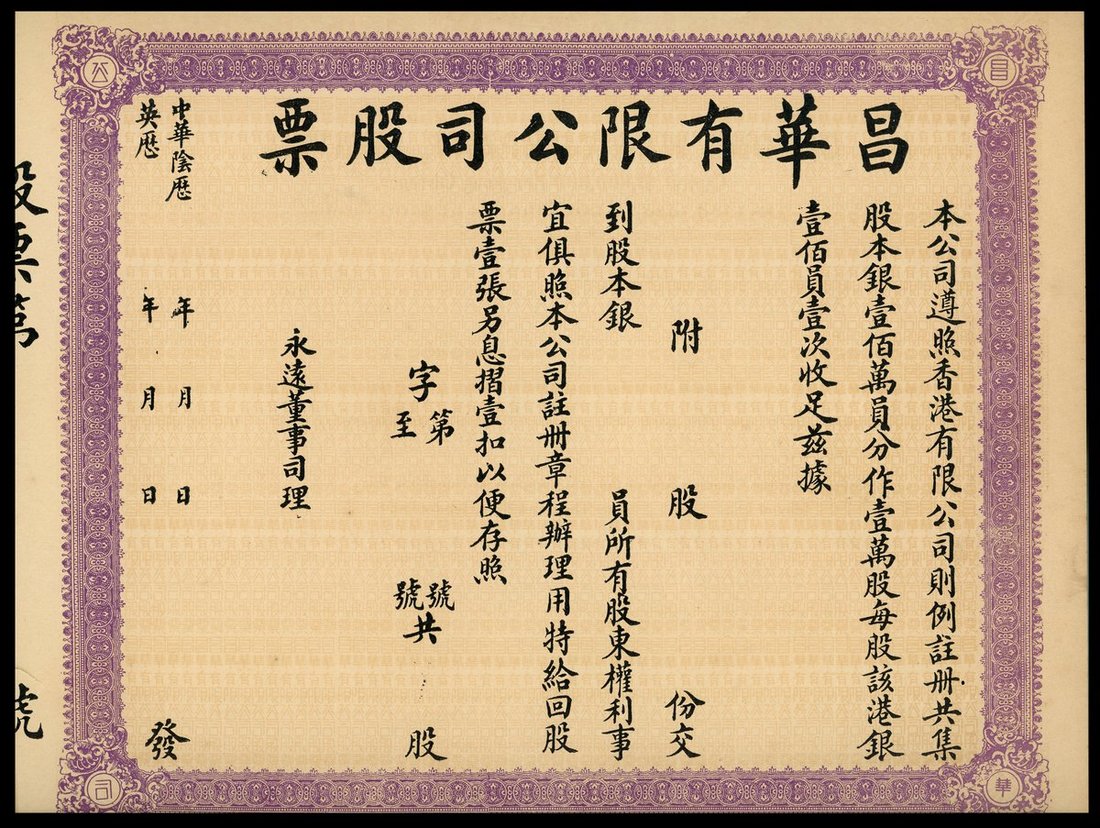 昌華有限公司股票
本公司遵照香港有限公司則例註冊共集
股本銀壹佰萬員分作壹萬股每股該港銀
壹佰員壹次收足茲據
附 股 份交
到股本銀 員所有股東權利事
宜俱照本公司註冊章程辦理用特給回股
票壹張另息摺壹扣以便存照
字第 號
至 號共 股
永遠董事司理
中華陰歷 年 月 日
英歷 年 月 日 發
股票第 號
昌
華
公
司